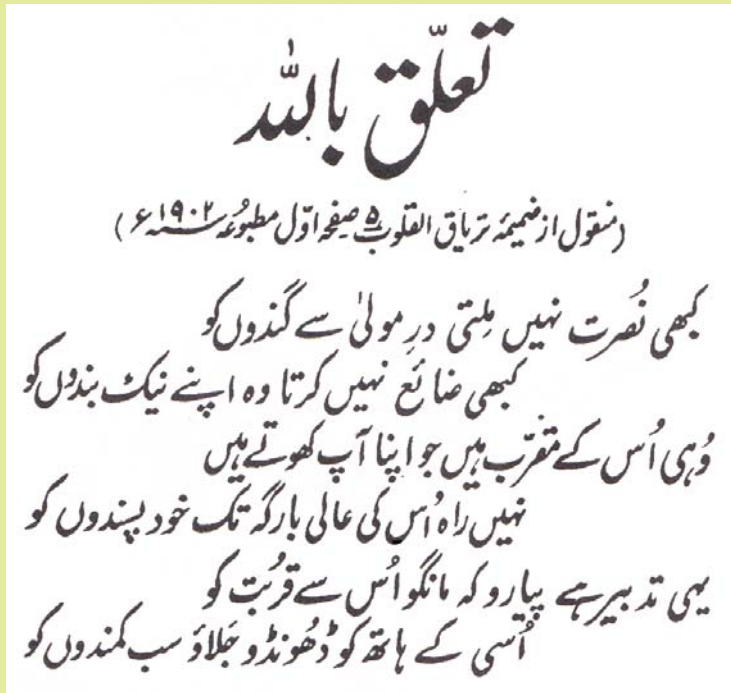 تعلّق باللہ
(منقول از ضمیمہ تریاق القلوب ۵ صفحہ اوّل مطبوعہ سنہ ۱۹۰۲ء)
کبھی نُصرت نہیں مِلتی درِ مولیٰ سے گندوں کو
کبھی ضائع نہیں کرتا وہ اپنے نیک بندوں کو
وُہی اُس کے مقرّب ہیں جو اپنا آپ کھوتے ہیں
نہیں راہ اُس کی عالی بارگہ تک خود پسندوں کو
یہی تدبیر ہے پیارو کہ مانگو اُس سے قُربت کو
اُسی کے ہاتھ کو ڈھُونڈو جَلاؤ سب کمندوں کو